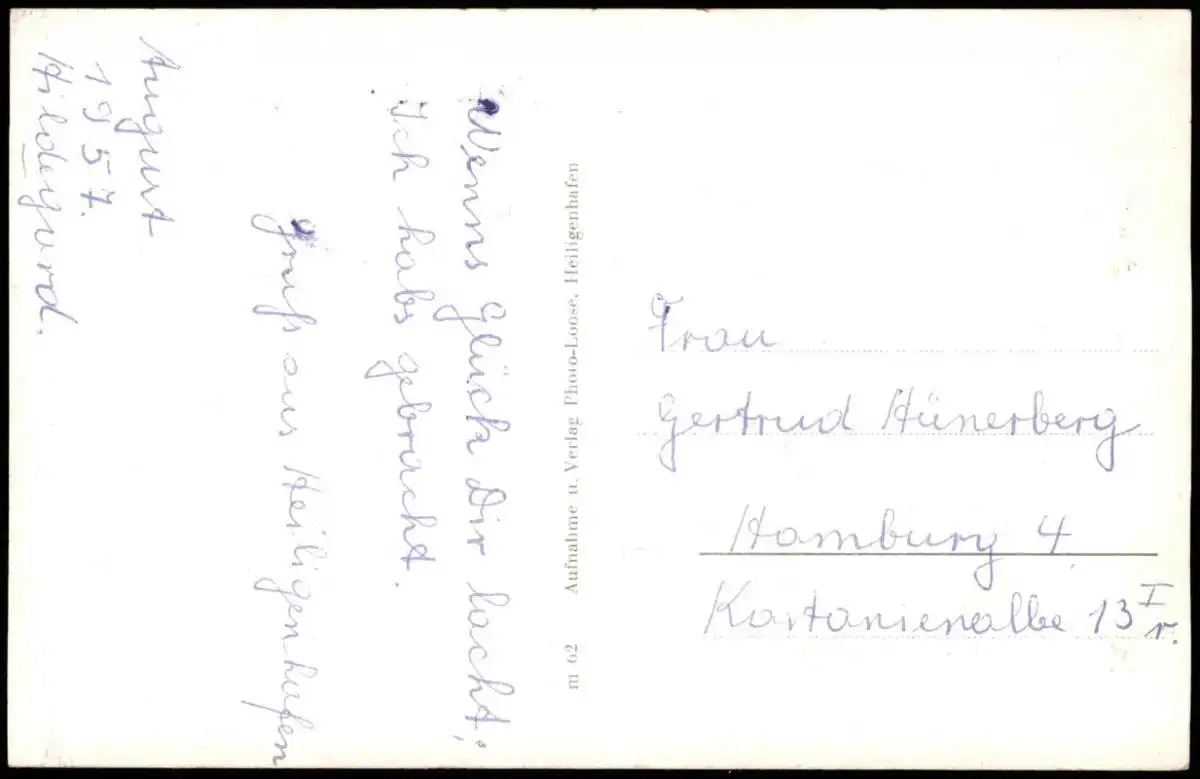 Wenns Glück Dir lacht,
Ich habs gebracht.
Gruß aus Heiligenhafen
August
1957.
Hildegard.
m 62 Aufnahme u. Verlag Photo-Loose, Heiligenhafen
Frau
Gertrud Hünerberg
Hamburg 4
Kastanienallee 13 I r.